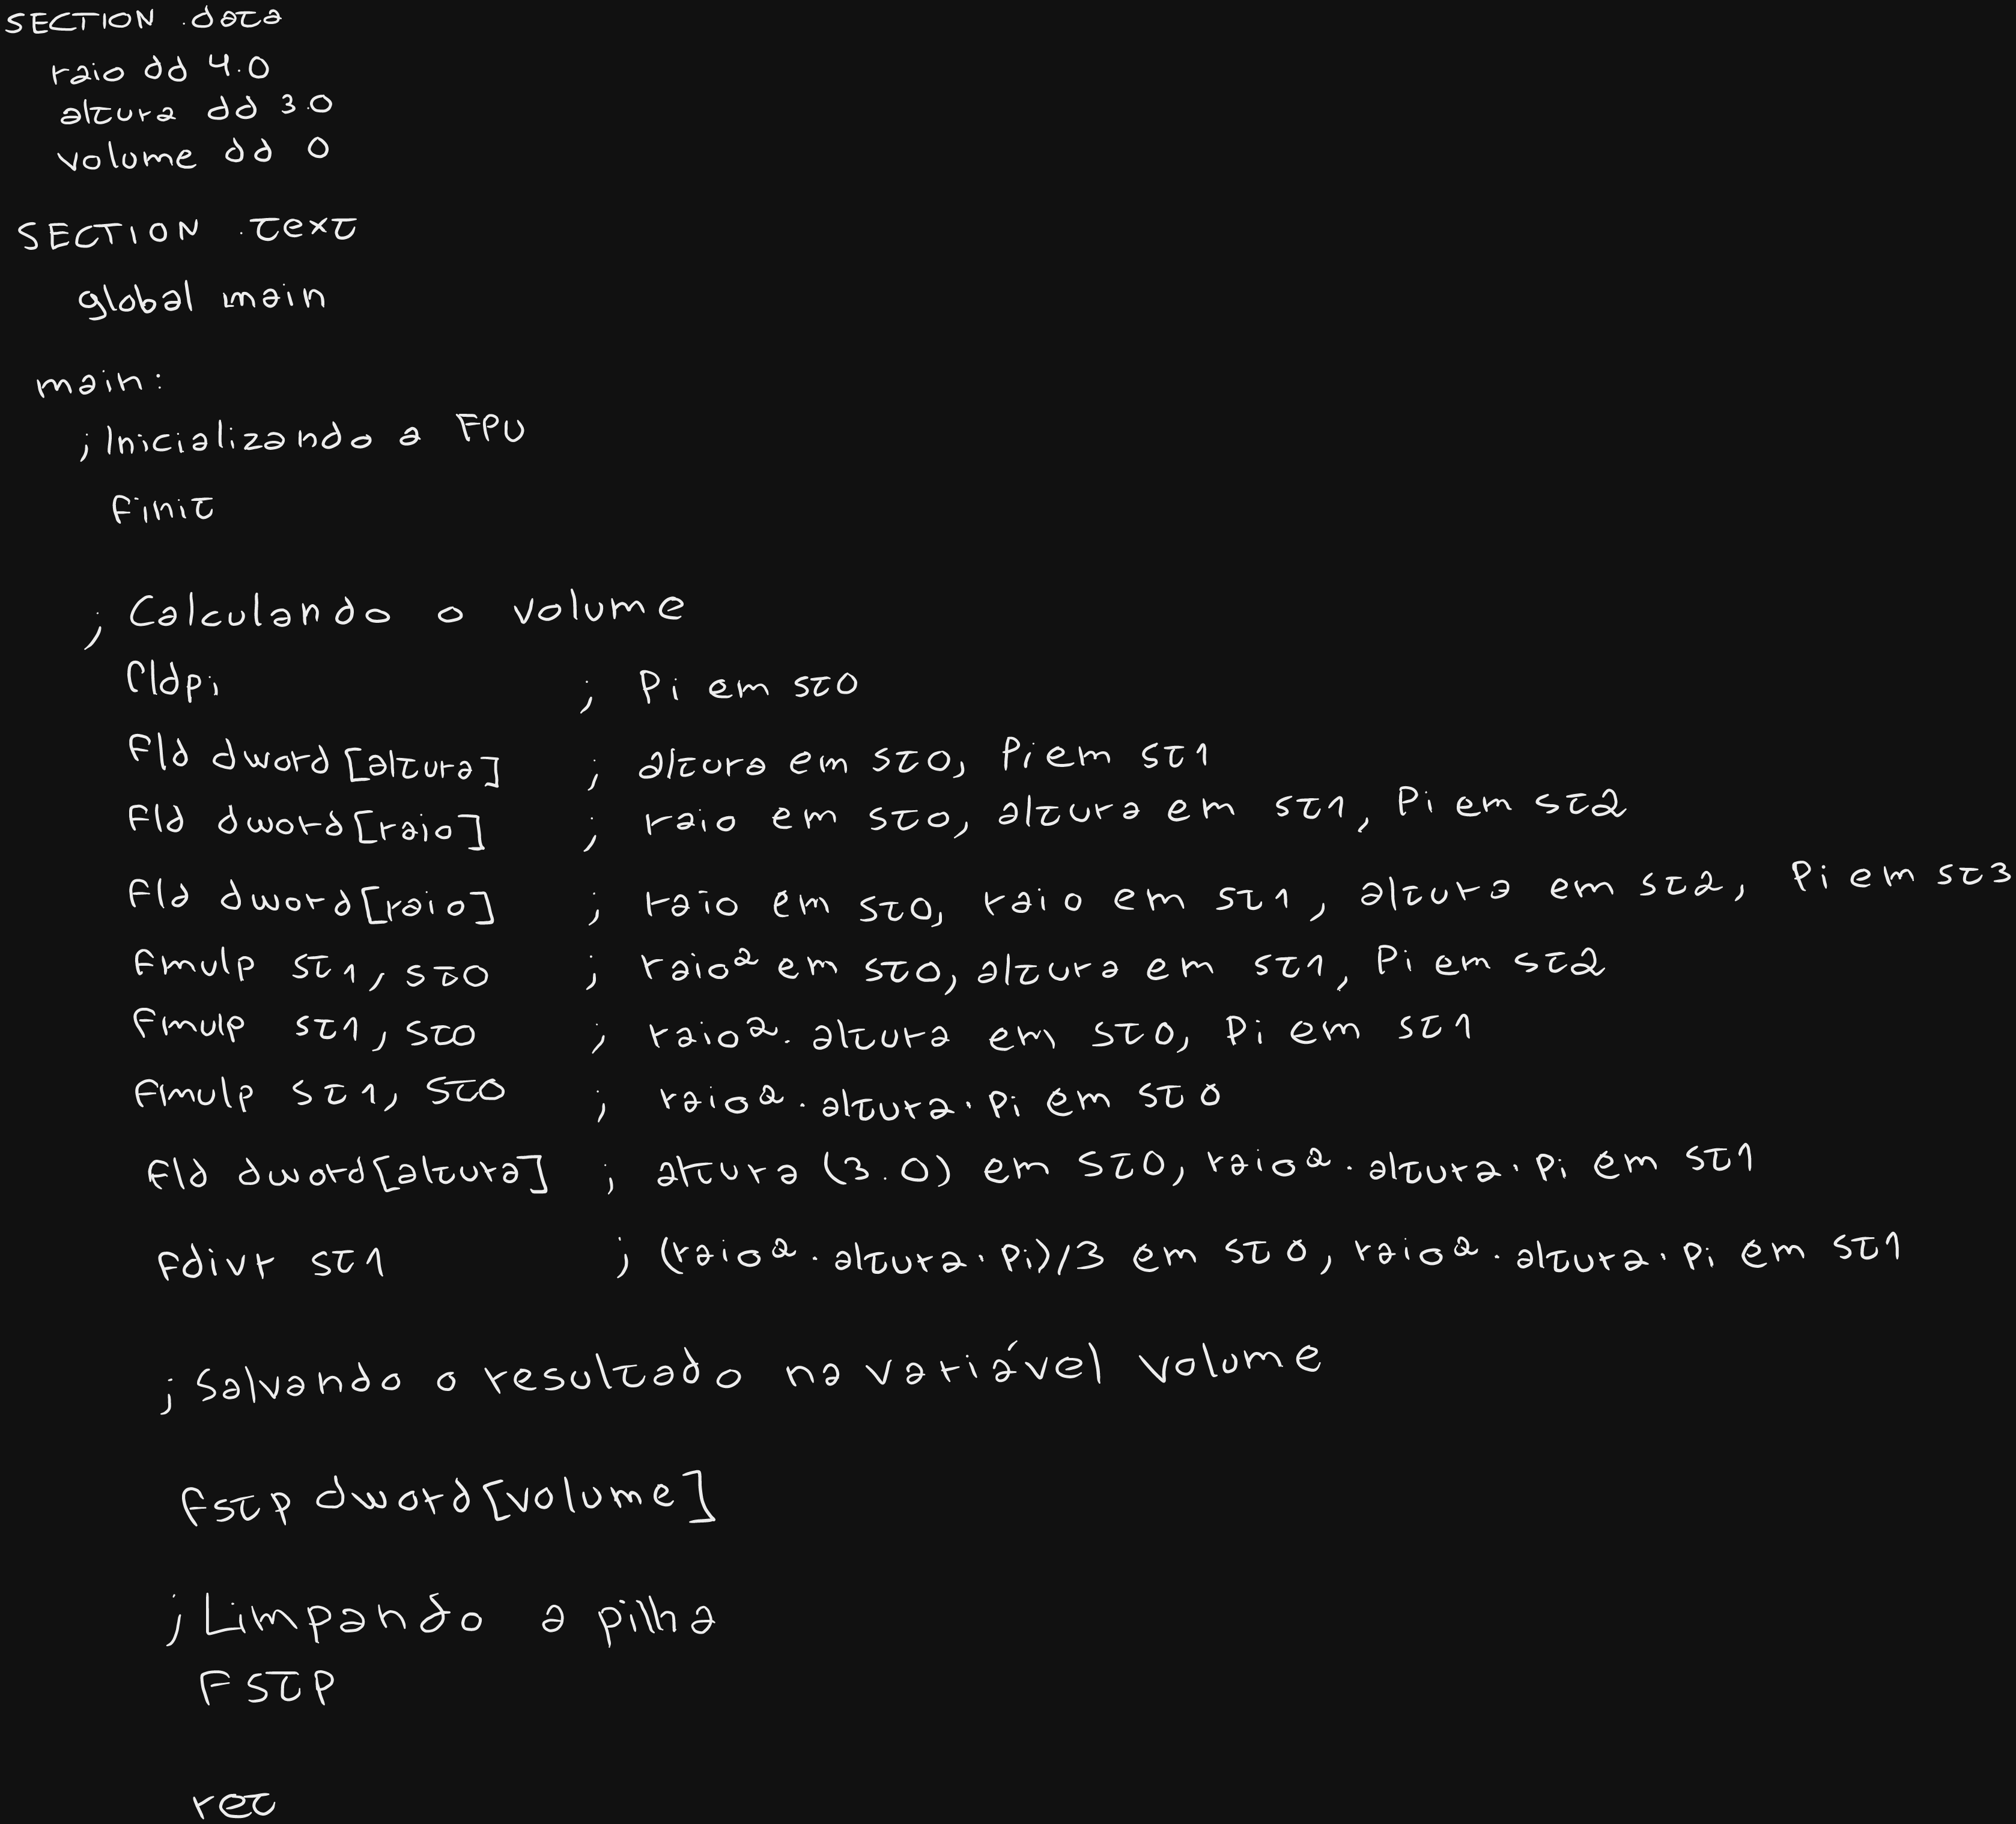 SECTION .data
raio dd 4.0
altura dd 3.0
volume dd 0
SECTION .text
global main
main:
;Inicializando a FPU
finit
; Calculando o volume
fldpi ; Pi em st0
fld dword[altura] ; altura em st0, Pi em st1
fld dword[raio] ; raio em st0, altura em st1, Pi em st2
fld dword[raio] ; raio em st0, raio em st1, altura em st2, Pi em st3
fmulp st1, st0 ; raio² em st0, altura em st1, Pi em st2
fmulp st1, st0 ; raio². altura em st0, Pi em st1
fmulp st1, st0 ; raio². altura. Pi em st0
fld dword[altura] ; altura (3.0) em st0, raio². altura. Pi em st1
fdivr st1 ; (raio². altura. Pi)/3 em st0, raio². altura. Pi em st1
; Salvando o resultado na variável volume
fstp dword[volume]
;Limpando a pilha
FSTP
ret